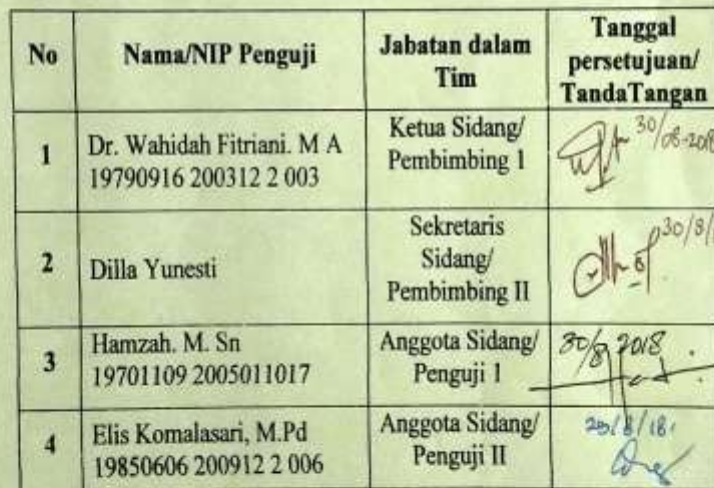 No
Nama/NIP Penguji
Jabatan dalam
Tim
Tanggal
persetujuan/
TandaTangan
1
Dr. Wahidah Fitriani. M A
19790916 200312 2 003
Ketua Sidang/
Pembimbing 1
30/08-2018
2
Dilla Yunesti
Sekretaris
Sidang/
Pembimbing II
30/8/
3
Hamzah. M. Sn
19701109 2005011017
Anggota Sidang/
Penguji 1
30/8 2018
4
Elis Komalasari, M.Pd
19850606 200912 2 006
Anggota Sidang/
Penguji II
/8/18